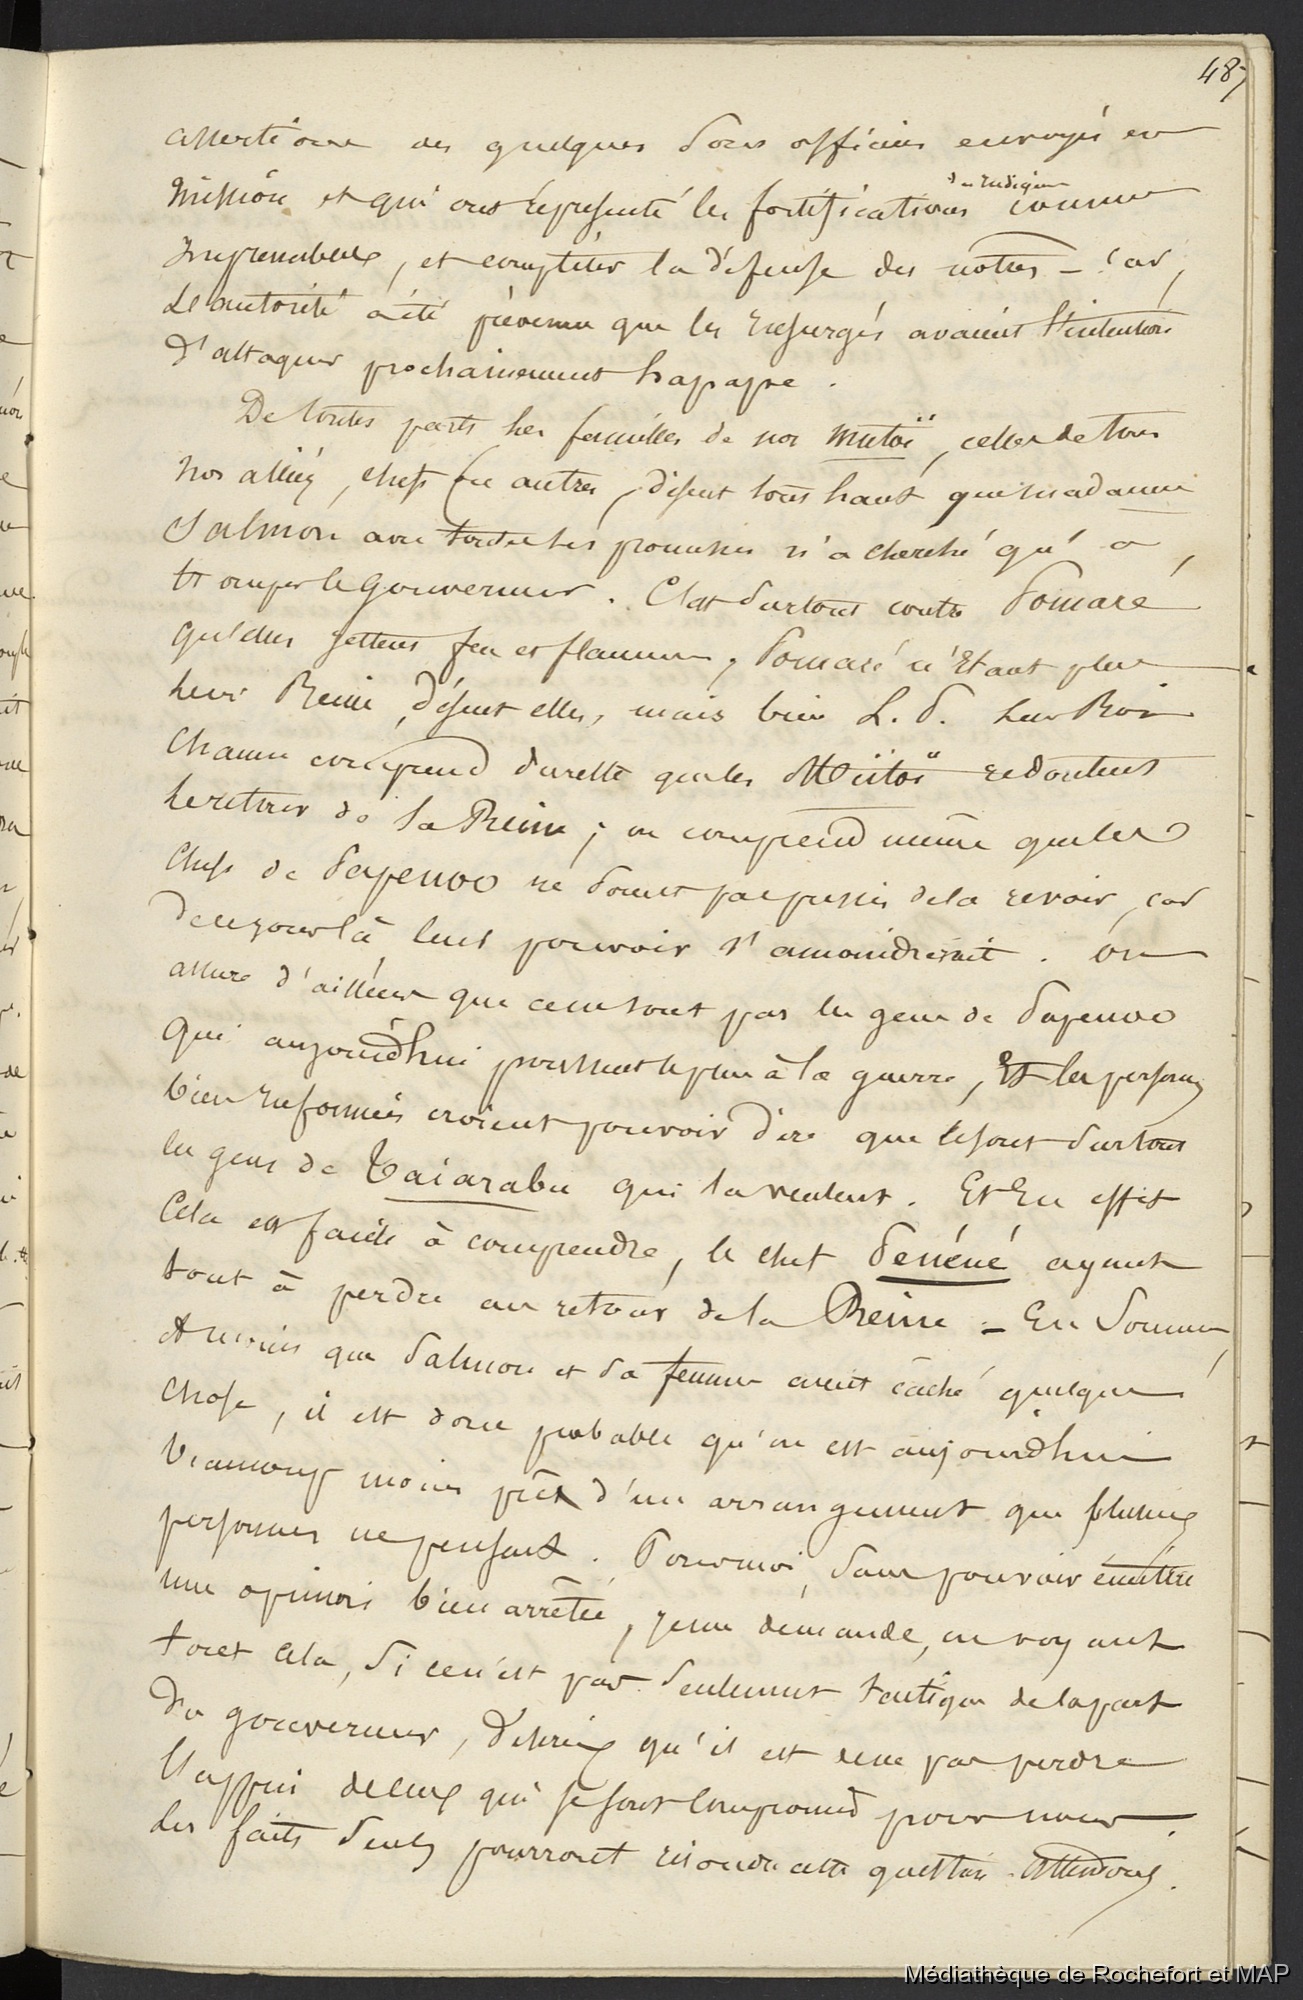 487
assertions des quelques sous officiers envoyés en
des indigènes
mission et qui ont représenté les fortifications comme
imprenables, et compléter la défense des nôtres – car,
L'autorité a été prévenue que les insurgés avaient l'intention
d'attaquer prochainement hapape.
De toutes parts les familles de nos mutoï, celles de tous
nos alliés, chefs ou autres, disent tout haut que madame
Salmon avec toutes ses promesses n'a cherché qu'à
tromper le gouverneur. C'est surtout contre Pomaré
qu'elles jettent feu et flamme, Pomaré n'étant plus
leur Reine, disent elles, mais bien L. P. leur Roi
Chacun comprend du reste que les Mütoï redoutent
le retour de la Reine; on comprend même que les
chefs de Papenoo ne soient pas pressés de la revoir, car
de ce jour là leur pouvoir s'amoindrirait. On
assure d'ailleurs que ce ne sont pas les gens de Papenoo
qui aujourd'hui poussent le plus à la guerre, Et les personnes
bien informées croient pouvoir dire que ce sont surtout
les gens de Taïarabu qui la veulent. Et en effet
Cela est facile à comprendre, le chef Péuéué ayant
tout à perdre au retour de la Reine – En somme,
A moins que Salmon et sa femme aient caché quelque
chose, il est donc probable qu'on est aujourd'hui
beaucoup moins près d'un arrangement que plusieurs
personnes ne pensent. Pour moi, sans pouvoir émettre
une opinion bien arrêtée, je me demande, en voyant
tout cela, si ce n'est pas seulement tactique de la part
du gouverneur, désireux qu'il est de ne pas perdre
l'appui de ceux qui se sont compromis pour nous.
Les faits seuls pourront résoudre cette question. Attendons.
Médiathèque de Rochefort et MAP